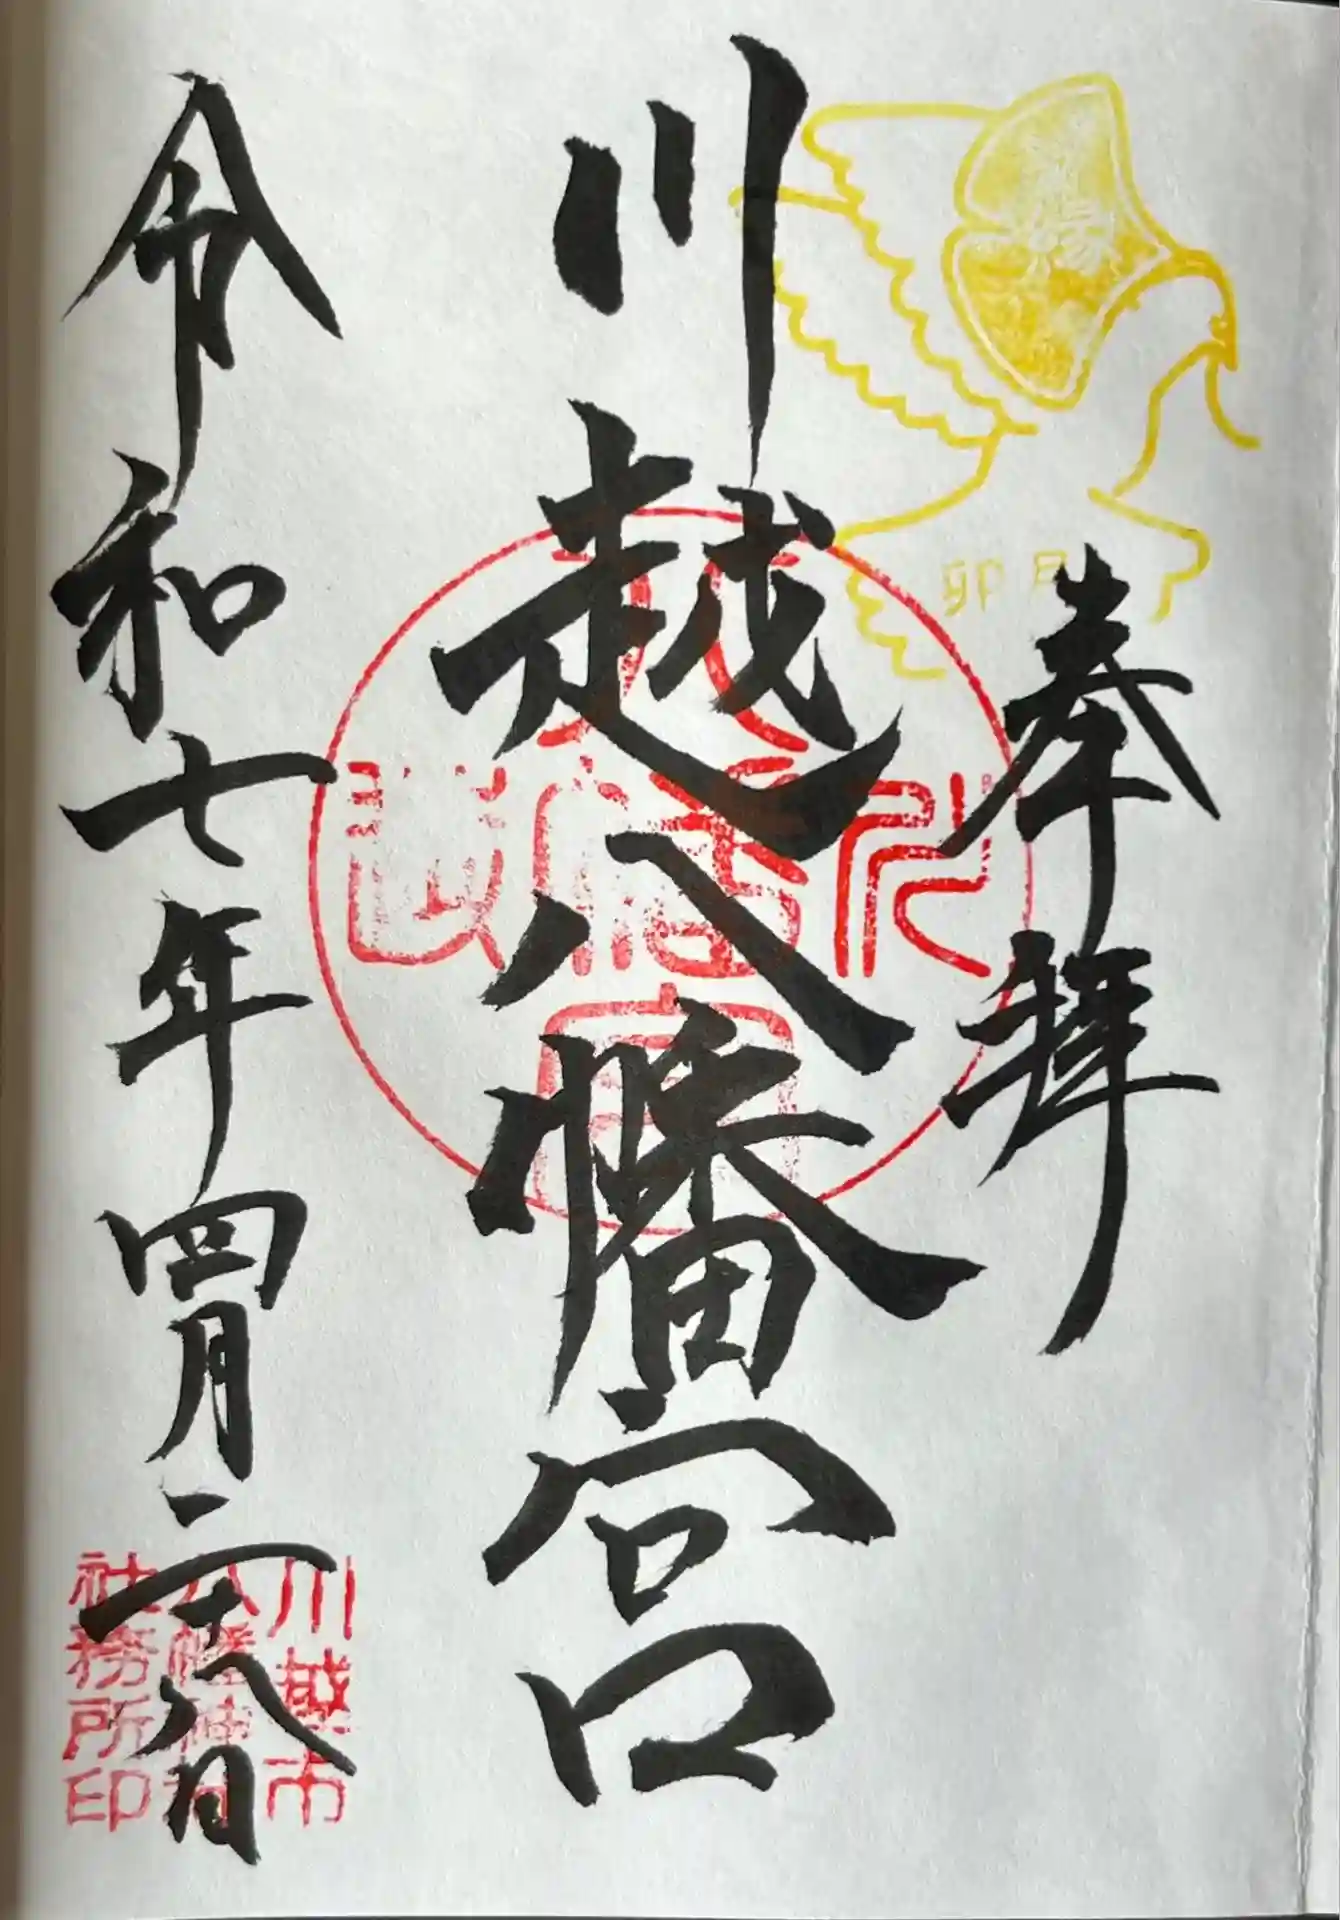 奉拝
川越八幡宮
令和七年四月二十八日
卯月
川越市
八幡神社
社務所印